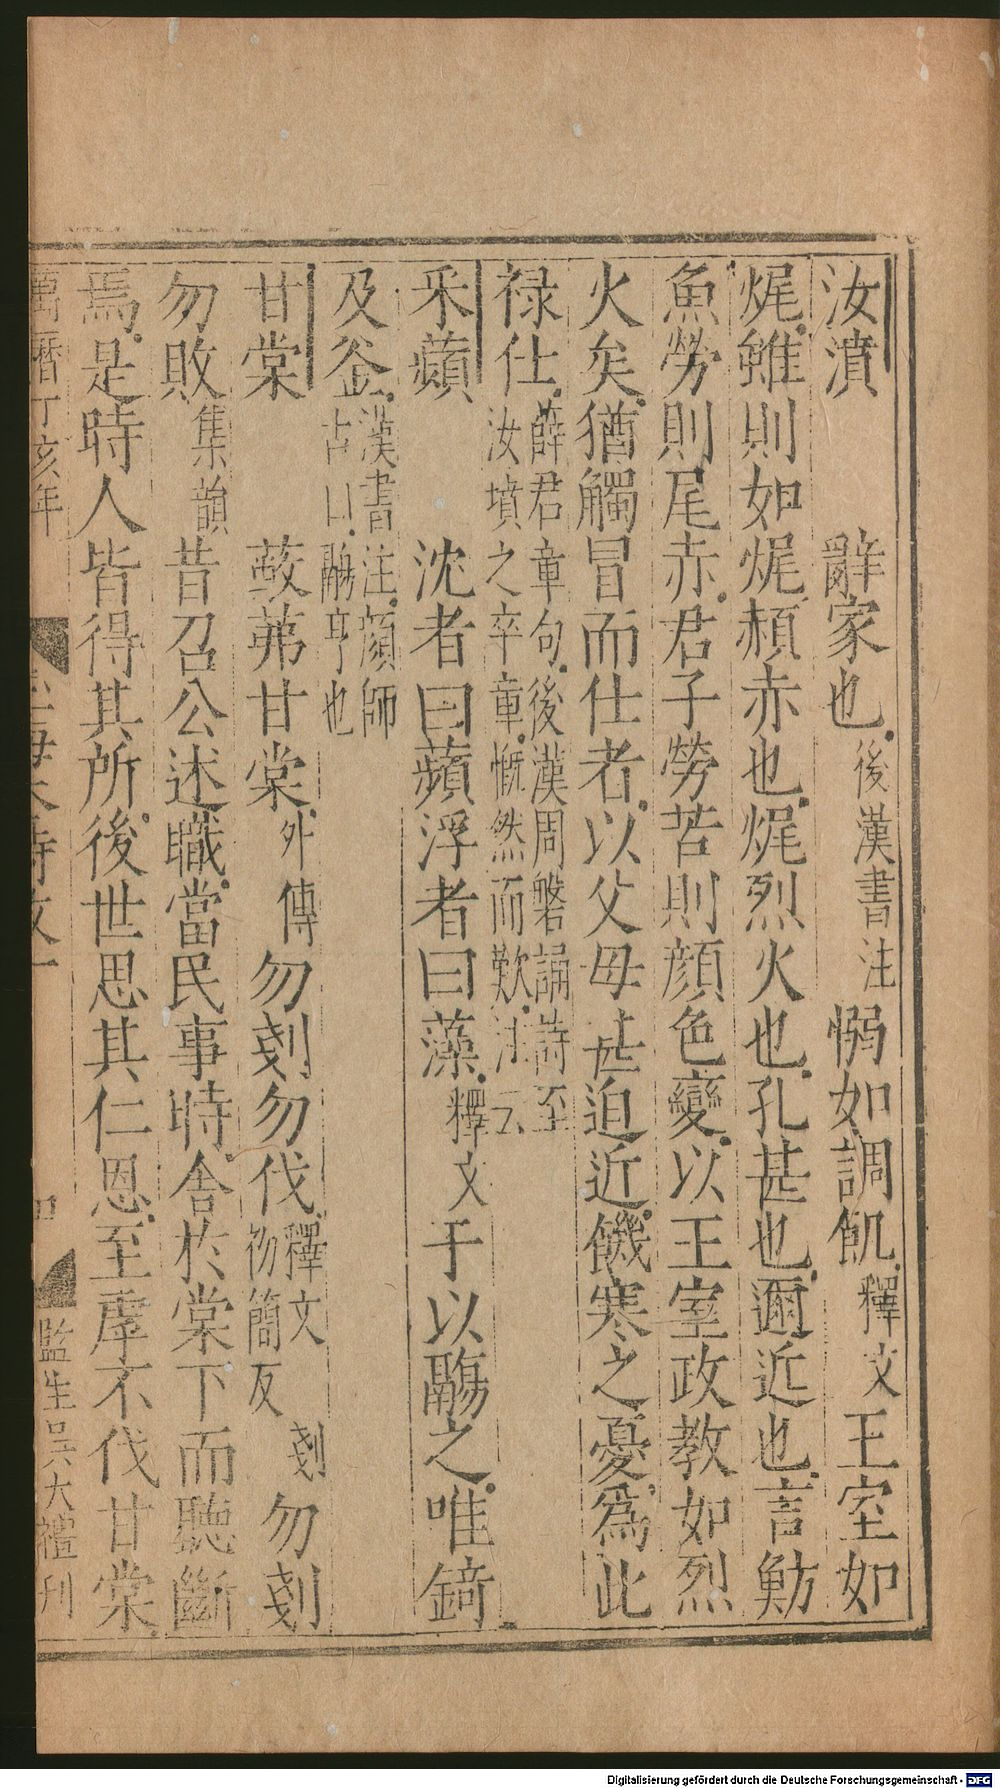 汝濆 辭家也後漢書注 惄如調飢釋文 王室如
㷄雖則如㷄頳赤也㷄烈火也孔甚也邇近也言魴
魚勞則尾赤君子勞苦則顔色變以王室政教如烈
火矣猶觸冒而仕者以父母甚迫近饑寒之憂爲此
禄仕薛君章句後漢周磐誦詩至
汝墳之卒章慨然而歎注云
采蘋 沈者曰蘋浮者曰藻釋文 于以鬺之唯錡
及釜漢書注顔師
古曰鬺亨也
甘棠 蔽茀甘棠外傳 勿剗勿伐釋文
初簡反 剗勿剗
勿敗集韻 昔召公述職當民事時舍於棠下而聽斷
焉是時人皆得其所後世思其仁恩至虖不伐甘棠
萬曆丁亥年 玉海 詩攷一 四 監生吳大禮刊
Digitalisierung gefördert durch die Deutsche Forschungsgemeinschaft - DFG